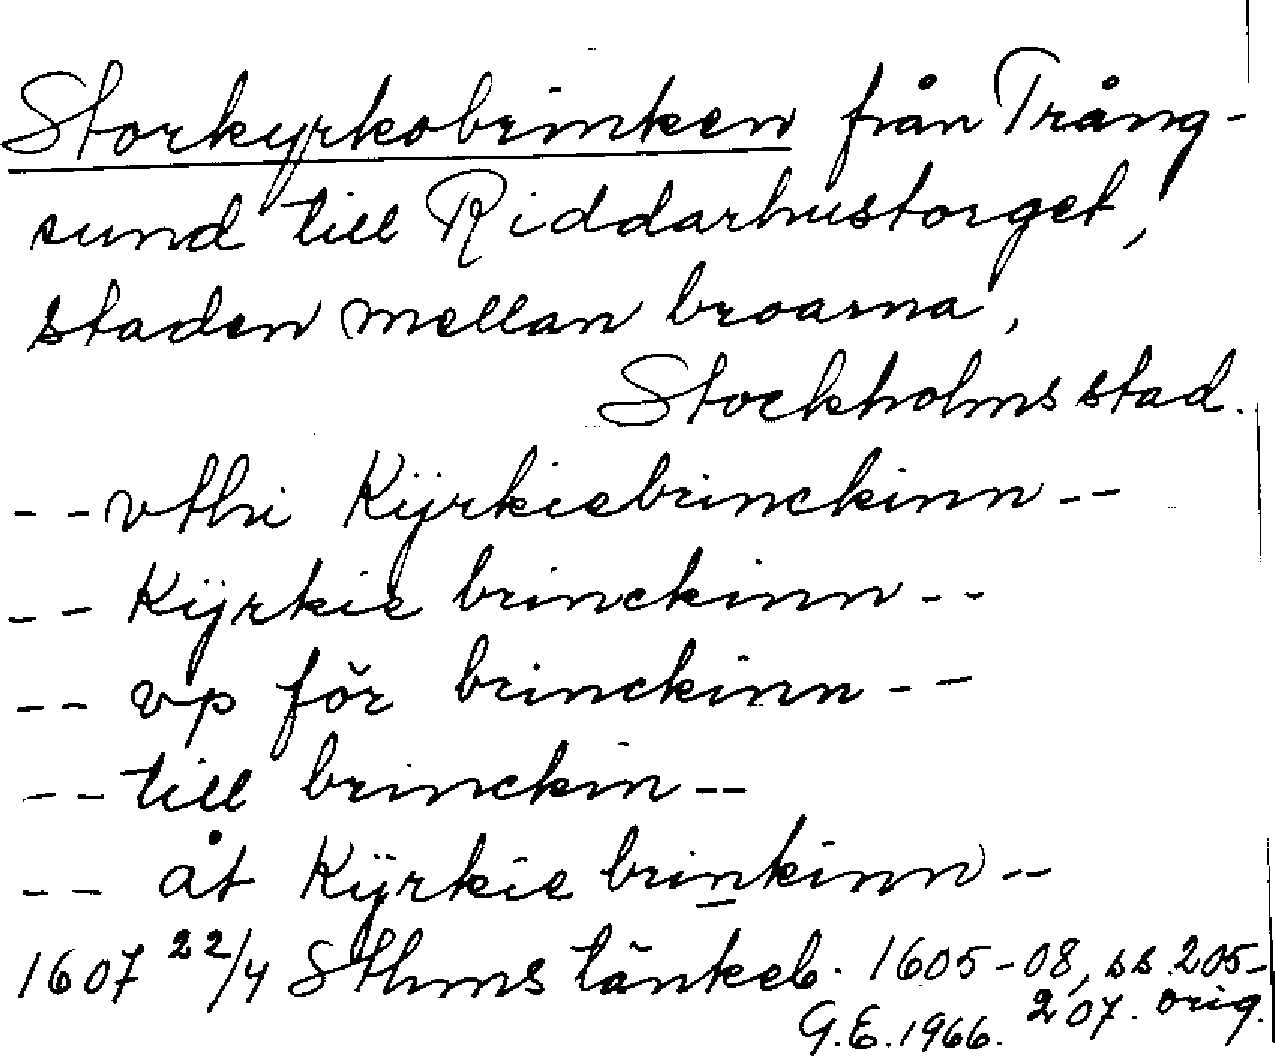 Storkyrkobrinken från Trång-
sund till Riddarhustorget,
staden mellan broarna,
Stockholms stad.
-- vthi Kÿrkiebrinckinn --
-- Kÿrkie brinckinn --
-- vp för brinckinn --
-- till brinckin --
-- åt Kÿrkie brinkinn --
1607 22/4 Sthms tänkeb. 1605-08, ss. 205-
207. orig.
G.E. 1966.